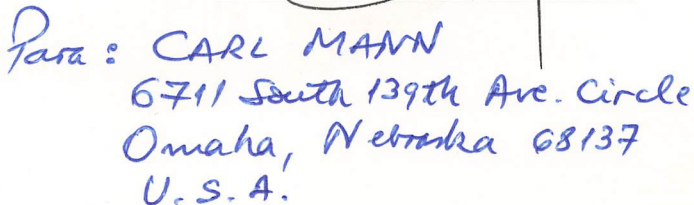 Para: CARL MANN
6711 South 139th Ave. Circle
Omaha, Nebraska 68137
U.S.A.